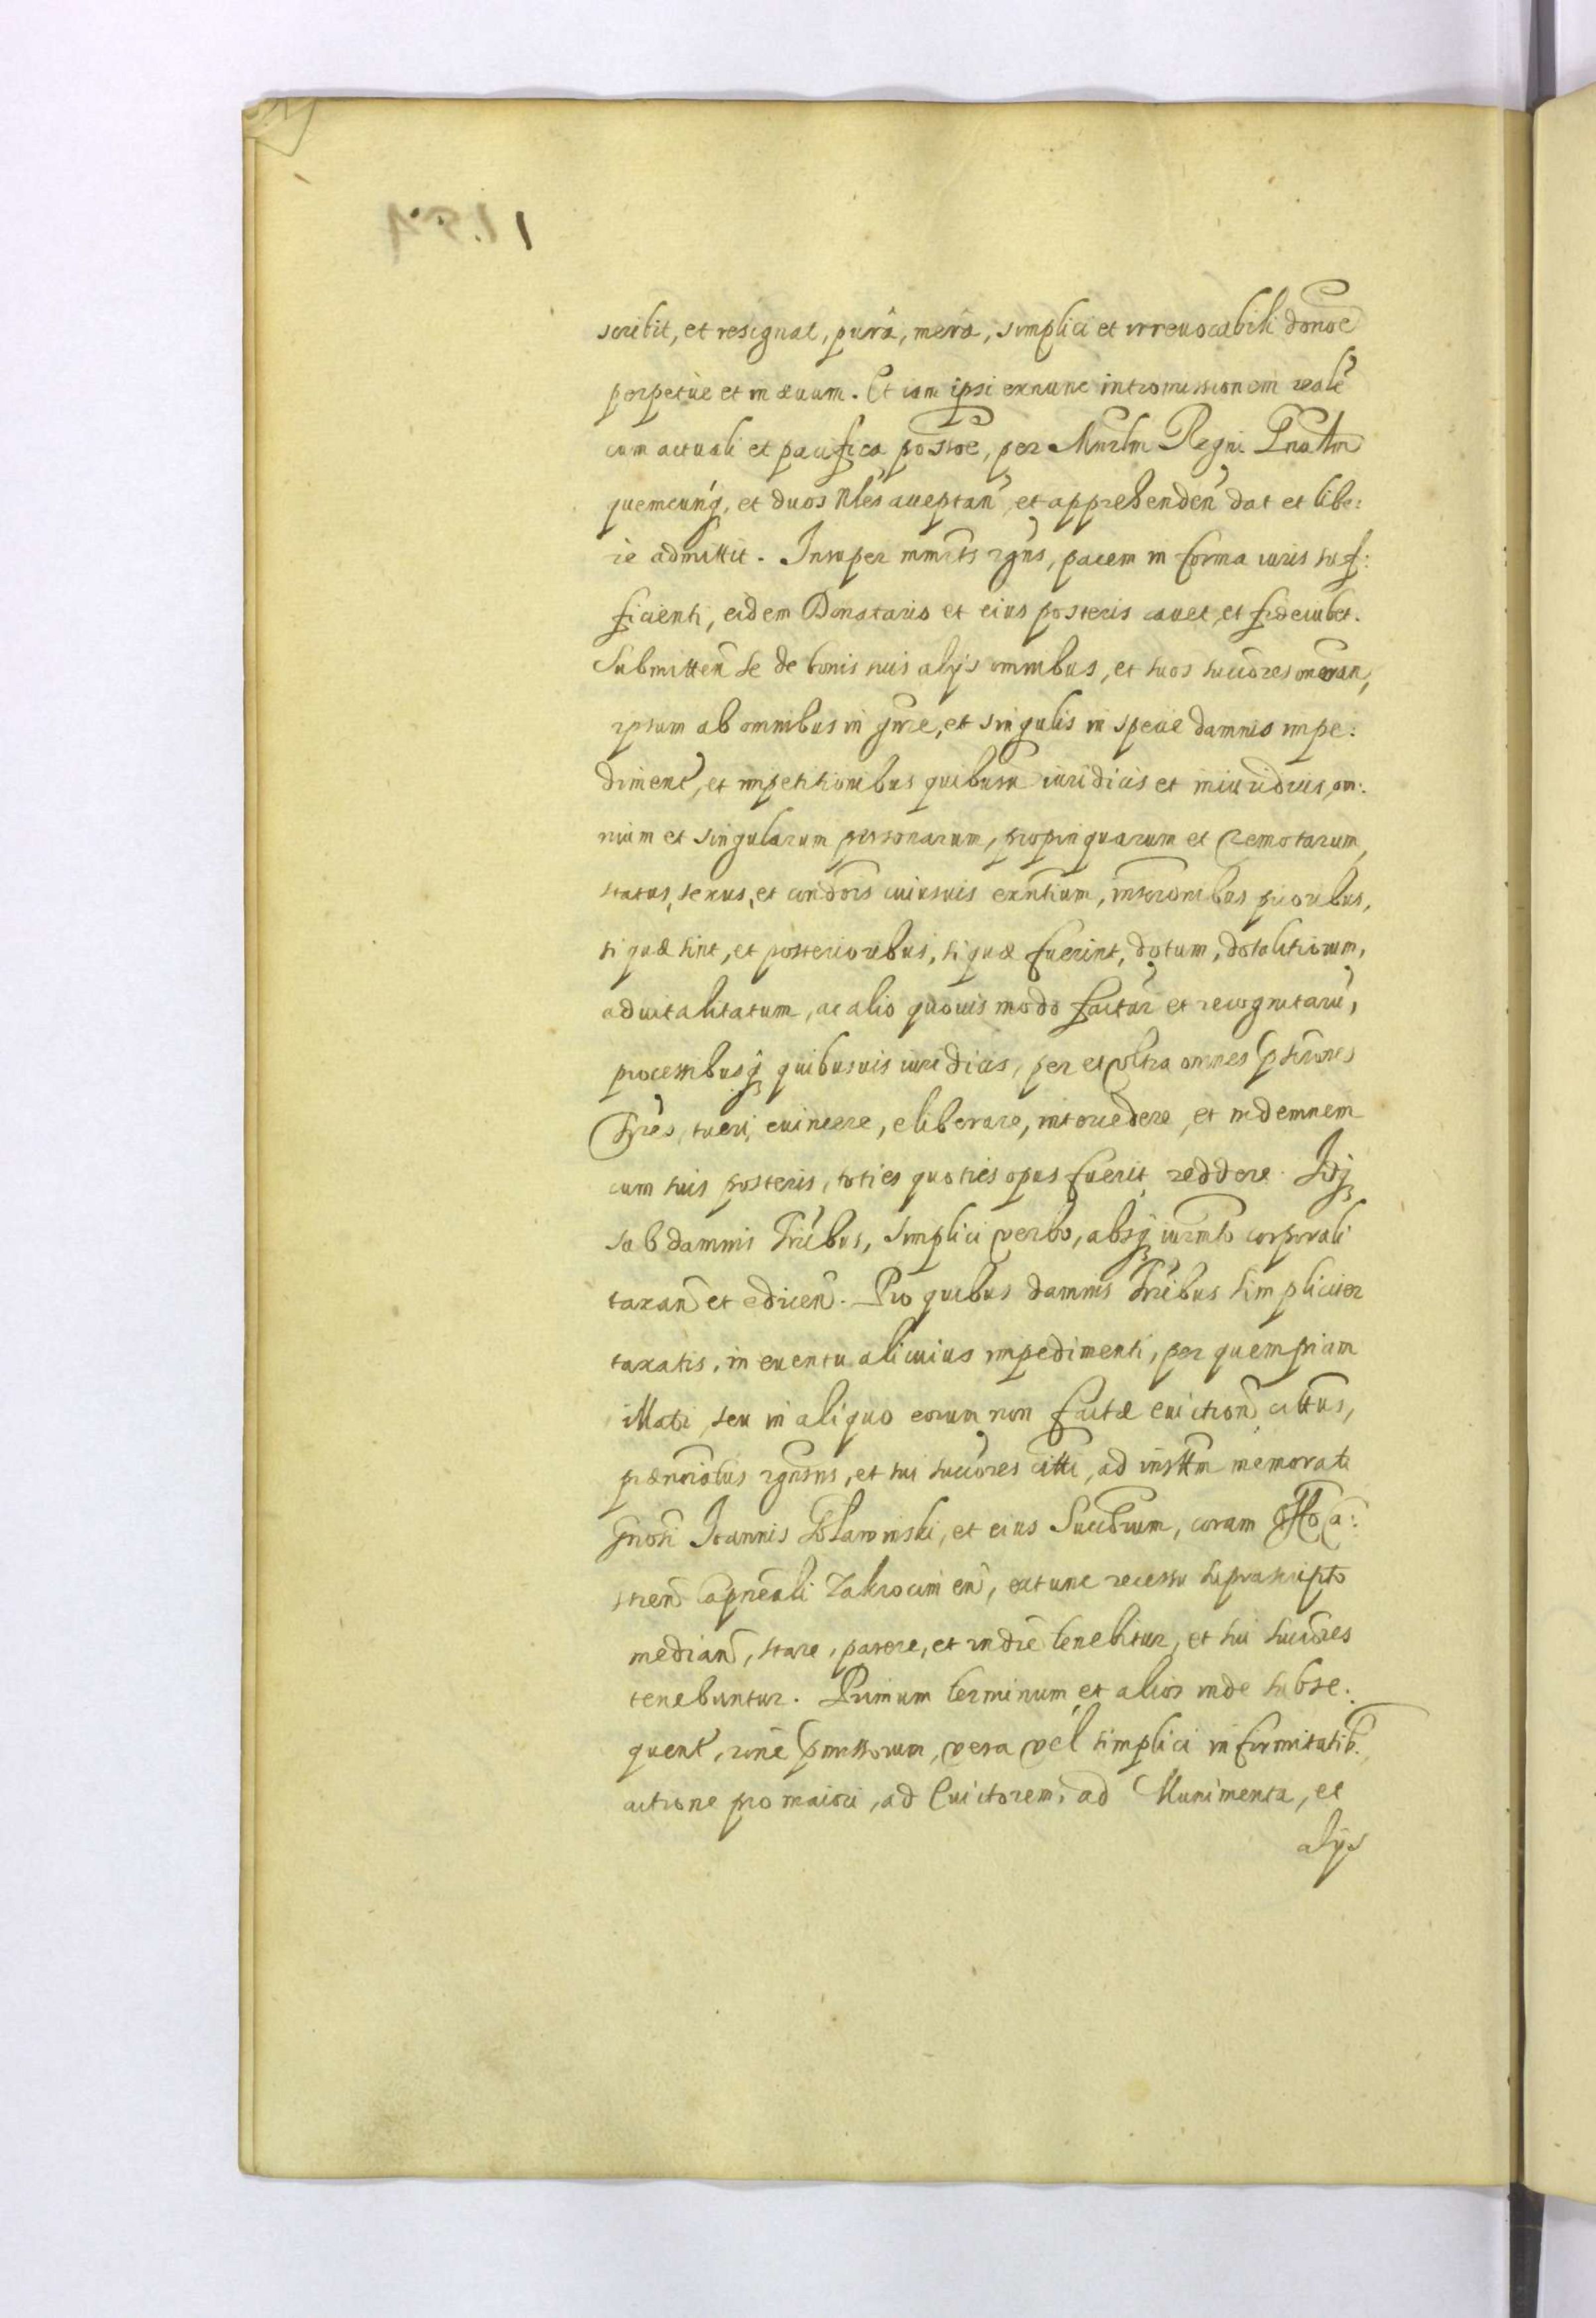 scribit, et resignat, purâ, merâ, simplici et irreuocabili donõe
perpetue et in æuum. Et iam ipsi exnunc intromissionem realẽ
cum actuali et pacifica possõe, per Mnrlm Regni Gnalm
quemcunq, et duos Nles acceptan et apprehenden dat et libe:
re admittit. Insuper mmrts rgns, pacem in forma iuris suf:
ficienti, eidem Donatario et eius posteris cauet, et fideiubet.
Submitten se de bonis suis alijs omnibus, et suos succõres oneran,
ipsum ab omnibus in gnre, et singulis in specie damnis impe:
diment, et impetitionibus quibusuis iuridicis et iniuridicis, om:
nium et singularum personarum, propinquarum et remotarum,
status, sexus, et condõis cuiusuis exñtium, inscrõnibus prioribus,
si quæ sint, et posterioribus, si quæ fuerint, dotum, dotalitiorum,
aduitalitatum, ac alio quouis modo factar et recognitarũ,
processibusq quibusuis iuridicis, per et ultra omnes pstiones
Trres, tueri, euincere, eliberare, intercedere, et indemnem
cum suis posteris, toties quoties opus fuerit, reddere. Idq
sub damnis Trribus, simplici verbo, absq iurmto corporali
taxan et edicen. Pro quibus damnis Trribus simpliciter
taxatis, in euentu alicuius impedimenti, per quempiam
illati, seu in aliquo eorum non factæ euiction, cittus,
prænoiatus rgnsns, et sui succõres citti, ad insttm memorati
Gnosi Ioannis Golawinski, et eius Succõrum, coram Offo Ca:
stren Capneali Zakrocimen, extunc recessu suprascripto
median, stare, parere, et indre tenebitur, et sui succõres
tenebuntur. Primum terminum et alios inde subse:
quent, sine pmissorum, vera vel simplici infirmitatib,
actione pro maiori, ad Euictorem, ad Munimenta, et
alijs